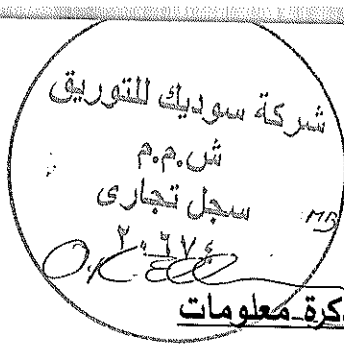 شركة سوديك للتوريق
ش.م.م
سجل تجارى
٢٠٦٧٤
MB
كرة معلومات